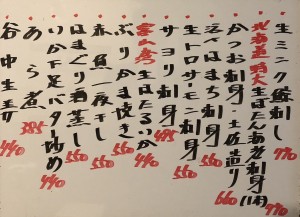 生ミンク鯨刺し 770
北海道 特大 生ぼたんあ老刺身(1本) 770
かつお刺身・土佐造り 660
活〆はまち刺身 550
生トロサーモン刺身 550
サヨリ刺身 495
富山湾 生ほたるいか 440
ぶりかま焼き 550
赤魚一夜干し 550
はまぐり酒蒸し 550
いか下足バター炒め 440
あら煮 385
谷中生姜 440